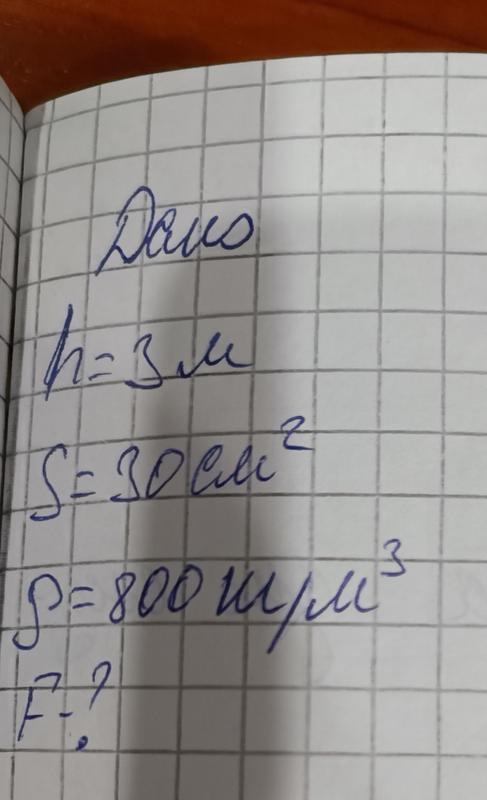 Дано
h=3м
S=30см²
ρ=800кг/м³
F-?